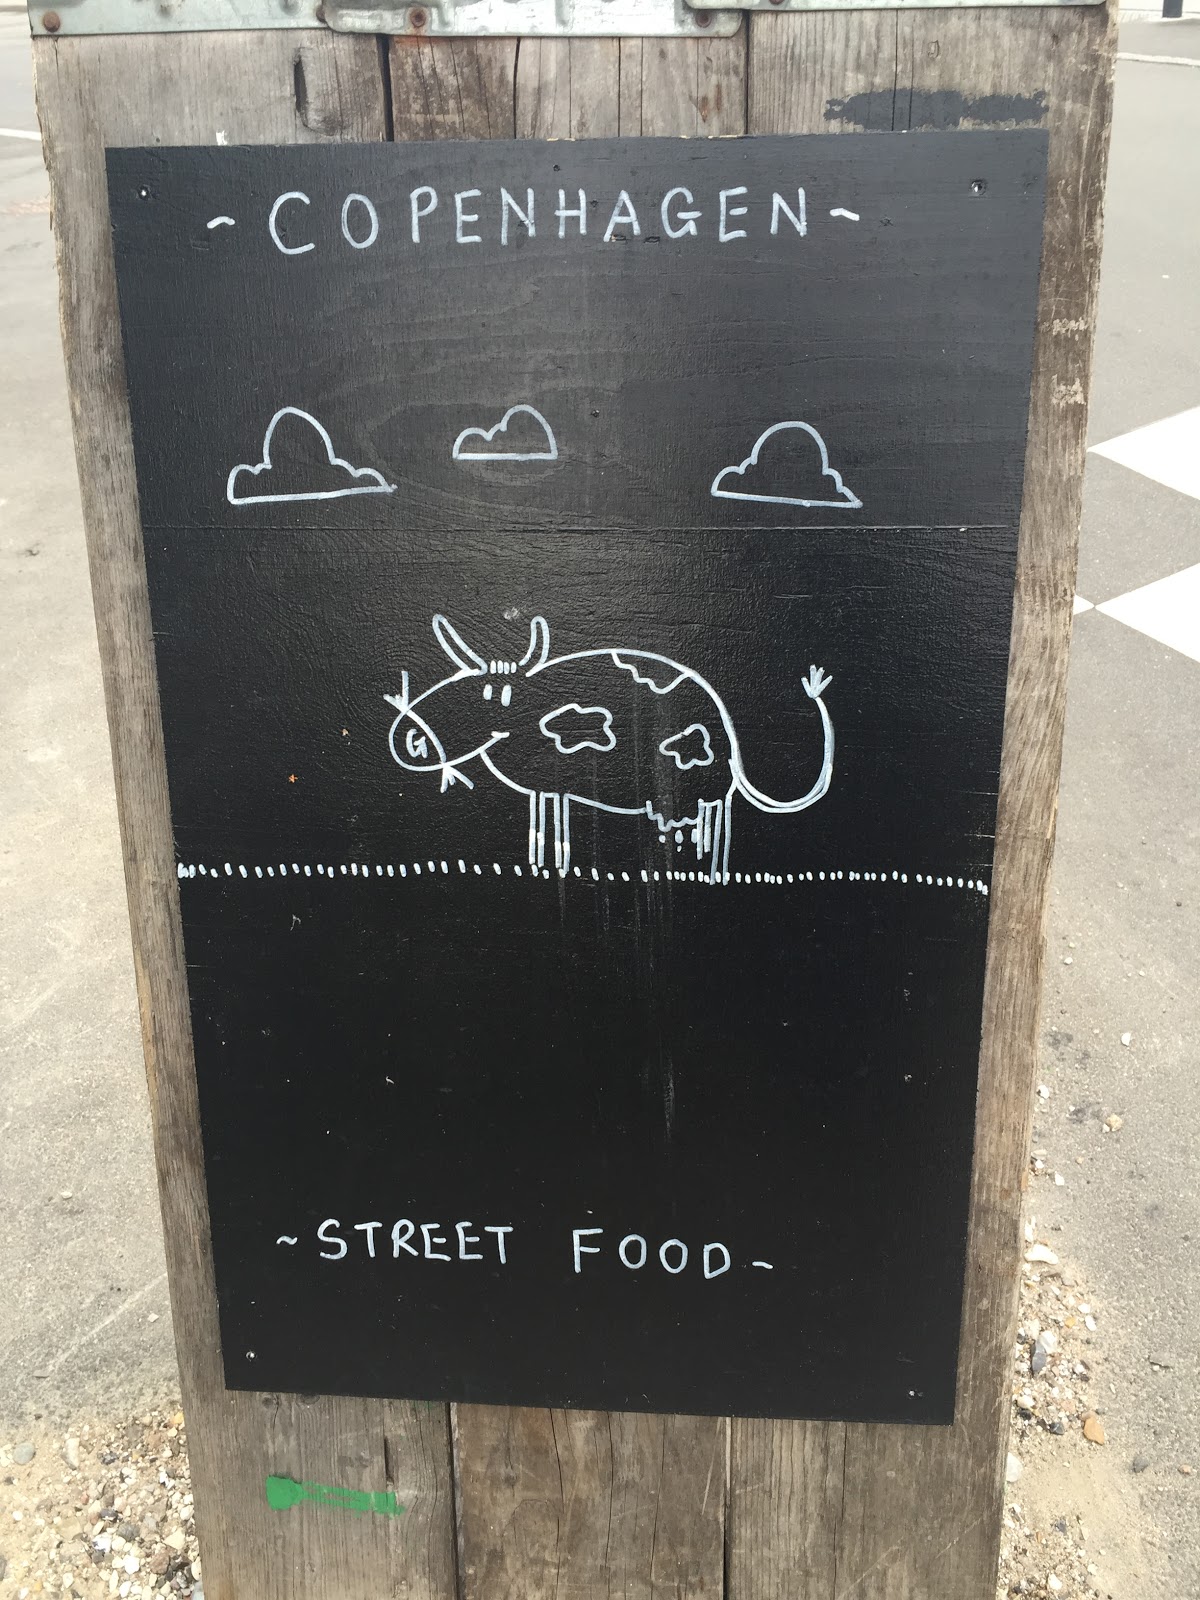 ~ COPENHAGEN ~
G
~ STREET FOOD ~